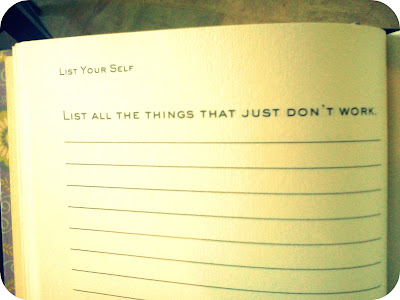 List Your Self
List all the things that just don't work.